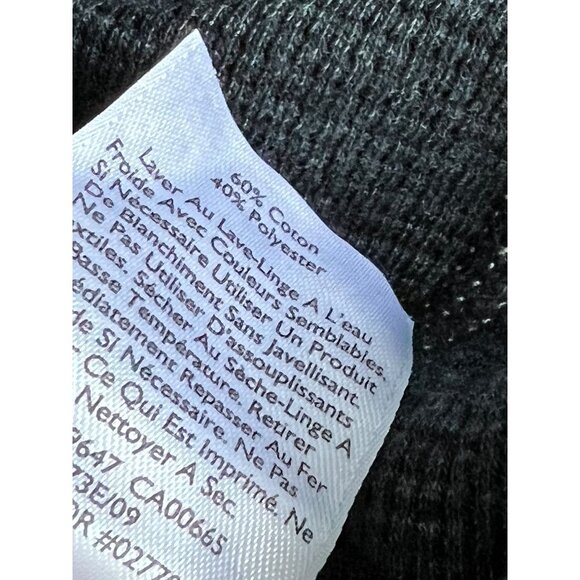 60% Coton
40% Polyester
Laver Au Lave-Linge A L'eau
Froide Avec Couleurs Semblables.
Si Nécessaire Utiliser Un Produit
De Blanchiment Sans Javellisant.
Ne Pas Utiliser D'assouplissants
Sécher Au Sèche-Linge A
Basse Température Retirer
Si Nécessaire Repasser Au Fer
Si Nécessaire. Ne Pas
Ce Qui Est Imprimé. Ne
Nettoyer A Sec.
647 CA00665
73E/09